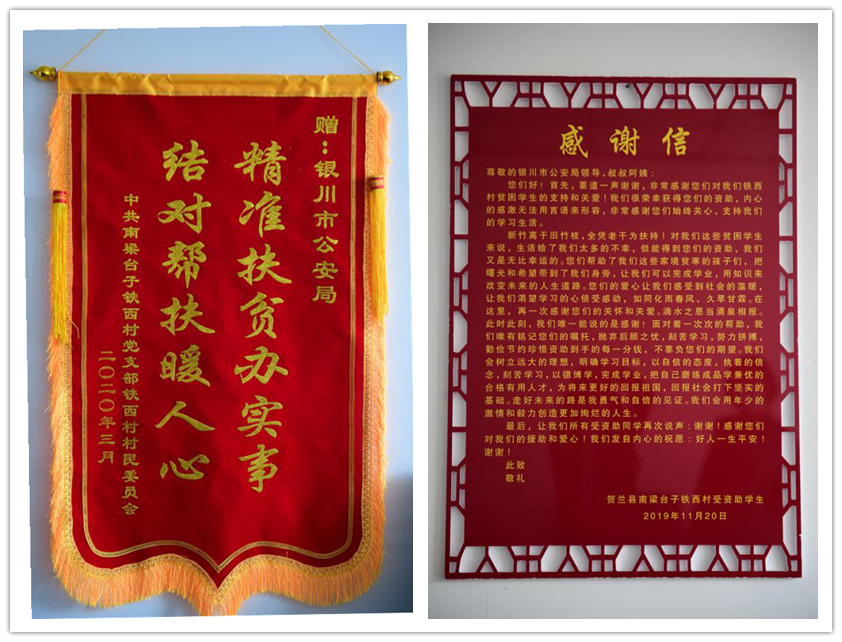 赠：银川市公安局
精准扶贫办实事
结对帮扶暖人心
中共南梁台子铁西村党支部铁西村村民委员会
二〇二〇年三月
感谢信
尊敬的银川市公安局领导、叔叔阿姨：
您们好！首先，要道一声谢谢，非常感谢您们对我们铁西
村贫困学生的支持和关爱！我们很荣幸获得您们的资助，内心
的感激无法用言语来形容，非常感谢您们始终关心、支持我们
的学习生活。
新竹高于旧竹枝，全凭老干为扶持！对我们这些贫困学生
来说，生活给了我们太多的不幸，但能得到您们的资助，我们
又是无比幸运的。您们帮助了我们这些家境贫寒的孩子们，把
曙光和希望带到了我们身旁，让我们可以完成学业，用知识来
改变未来的人生道路。您们的爱心让我们感受到社会的温暖，
让我们渴望学习的心倍受感动，如同化雨春风、久旱甘霖。在
这里，再一次感谢您们的关怀和关爱。滴水之恩当涌泉相报。
此时此刻，我们唯一能说的是感谢！面对着一次次的帮助，我
们唯有铭记您们的嘱托，抛弃后顾之忧，刻苦学习，努力拼搏，
勤俭节约珍惜资助到手的每一分钱，不辜负您们的期望。我们
会树立远大的理想，明确学习目标，以自信的态度，执着的信
念，刻苦学习，以德博学，完成学业，把自己磨练成品学兼优的
合格有用人才，为将来更好的回报祖国，回报社会打下坚实的
基础。走好未来的路是我勇气和自信的见证。我们会用年少的
激情和毅力创造更加绚烂的人生。
最后，让我们所有受资助同学再次说声：谢谢！感谢您们
对我们的援助和爱心！我们发自内心的祝愿：好人一生平安！
谢谢！
此致
敬礼
贺兰县南梁台子铁西村受资助学生
2019年11月20日